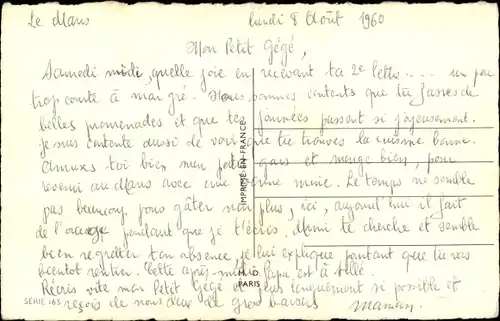 Le Mans
lundi 8 Août 1960
Mon Petit Gégé,
Samedi midi, quelle joie en recevant ta 2e lettre .... un peu
trop courte à mon gré. Nous sommes contents que tu fasses de
belles promenades et que tes journées passent si joyeusement.
Je suis contente aussi de voir que tu trouves la cuisine bonne.
Amuses toi bien mon petit gars et mange bien, pour
revenir au Mans avec une bonne mine. Le temps ne semble
pas beaucoup vous gâter non plus, ici, aujourd'hui il fait
de l'orage pendant que je t'écris. Mimi te cherche et semble
bien regretter ton absence, je lui explique pourtant que tu vas
bientôt rentrer. Cette après-midi Papa est à
Récris vite mon Petit Gégé et plus longuement si possible et
reçois de nous deux de gros baisers
maman
IMPRIMÉ EN FRANCE
PARIS
SÉRIE 165